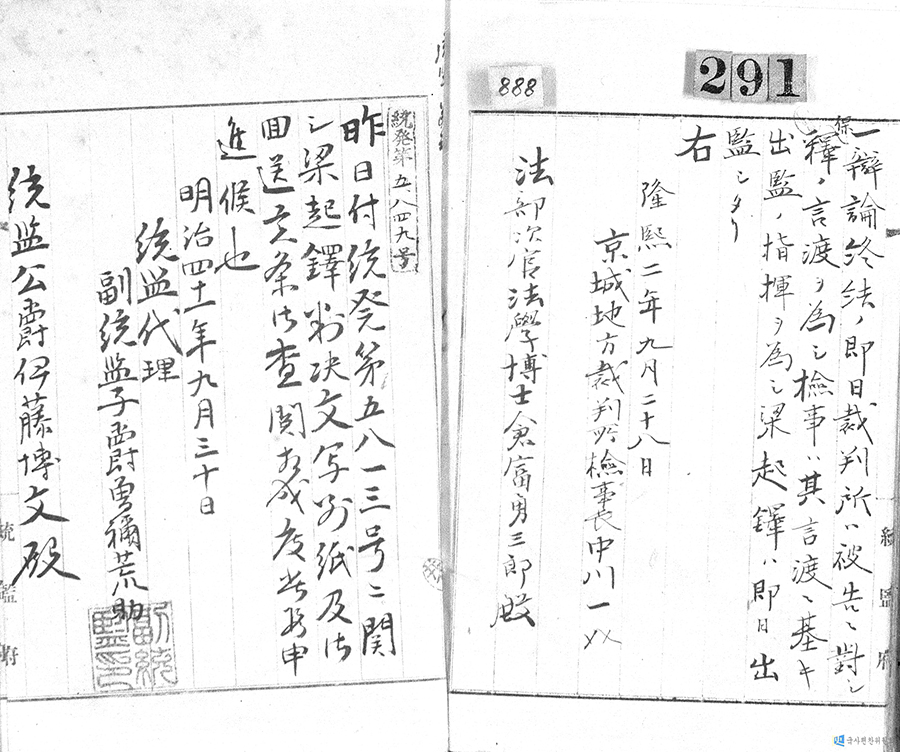 291
888
一辯論終結ノ即日裁判所ハ被告ニ對シ
保釋ノ言渡ヲ為シ檢事ハ其言渡ニ基キ
出監ノ指揮ヲ為シ梁起鐸ハ即日出
監シタリ
右
隆熙二年九月二十八日
京城地方裁判所檢事長中川一介
法部次官法學博士倉富勇三郎殿
統監府
統発第五八四九号
昨日付統発第五八一三号ニ関
シ梁起鐸判決文写別紙及御
回送候条御査閲相成度此段申
進候也
明治四十一年九月三十日
統監代理
副統監子爵曽禰荒助
副統監印
統監公爵伊藤博文殿
統監府
국사편찬위원회